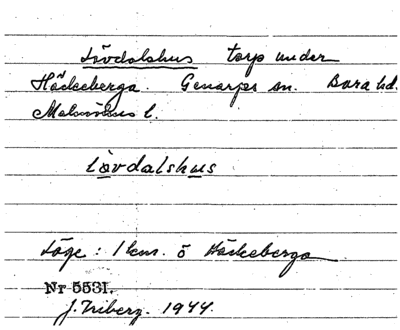 Lövdalshus torp under
Häckeberga. Genarps sn. Bara hd.
Malmöhus l.
Lövdalshus
Läge: 1 km. ö Häckeberga
Nr 5531.
J. Friberg. 1944.